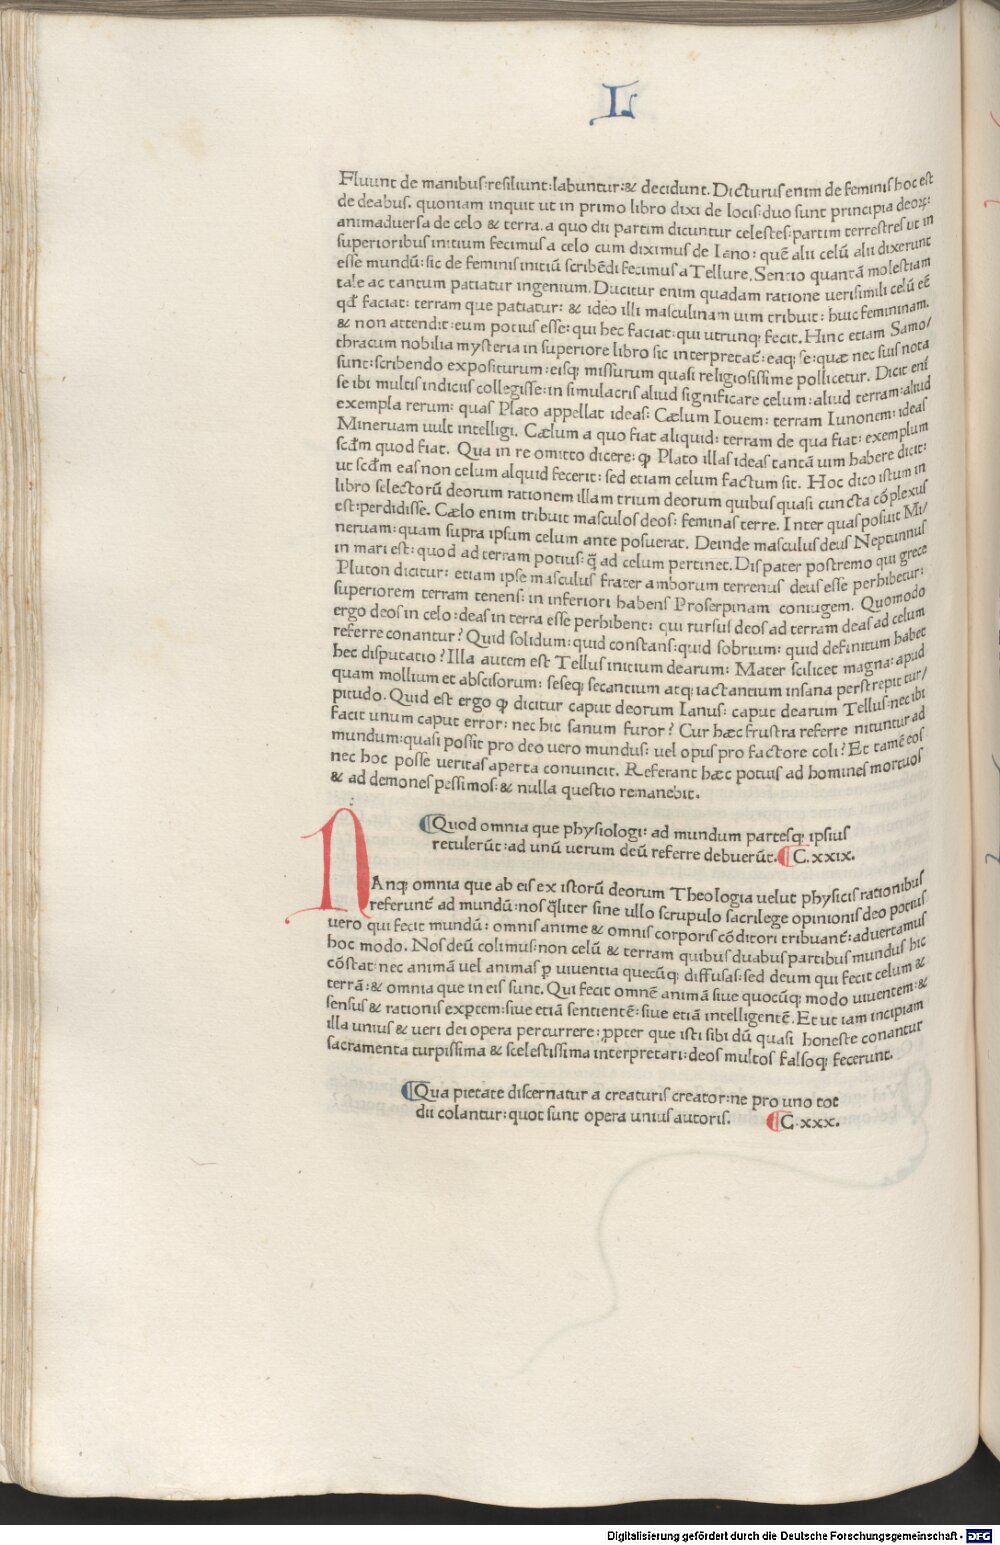 L
Fluunt de manibus:resiliunt:labuntur:& decidunt. Dicturus enim de feminis hoc est
de deabus. quoniam inquit ut in primo libro dixi de locis:duo sunt principia deoꝝ:
animaduersa de celo & terra.a quo dii partim dicuntur celestes:partim terrestres ut in
superioribus initium fecimus a celo cum diximus de Iano: quē alii celū alii dixerunt
esse mundū: sic de feminis initiū scribēdi fecimus a Tellure. Sentio quantā molestiam
tale ac tantum patiatur ingenium. Ducitur enim quadam ratione uerisimili celū eē
qđ faciat: terram que patiatur: & ideo illi masculinam uim tribuit: huic femininam.
& non attendit:eum potius esse:qui hec faciat:qui utrunqꝫ fecit. Hinc etiam Samo/
thracum nobilia mysteria in superiore libro sic interpretat̄: eaqꝫ se:quæ nec suis nota
sunt:scribendo expositurum:eisqꝫ missurum quasi religiosissime pollicetur. Dicit eni
se ibi multis indiciis collegisse:in simulacris aliud significare celum:aliud terram:aliud
exempla rerum: quas Plato appellat ideas: Cælum Iouem: terram Iunonem: ideas
Mineruam uult intelligi. Cælum a quo fiat aliquid: terram de qua fiat: exemplum
scdm quod fiat. Qua in re omitto dicere: ꝙ Plato illas ideas tantā uim habere dicit:
ut scdm eas non celum alquid fecerit: sed etiam celum factum sit. Hoc dico istum in
libro selectorū deorum rationem illam trium deorum quibus quasi cuncta cōplexus
est:perdidisse. Cælo enim tribuit masculos deos: feminas terre. Inter quas posuit Mi/
neruam:quam supra ipsum celum ante posuerat. Deinde masculus deus Neptunnus
in mari est: quod ad terram potius: q̄ ad celum pertinet. Dis pater postremo qui grece
Pluton dicitur: etiam ipse masculus frater amborum terrenus deus esse perhibetur:
superiorem terram tenens: in inferiori habens Proserpinam coniugem. Quomodo
ergo deos in celo:deas in terra esse perhibent: qui rursus deos ad terram deas ad celum
referre conantur? Quid solidum:quid constans:quid sobrium: quid definitum habet
hec disputatio? Illa autem est Tellus initium dearum: Mater scilicet magna: apud
quam mollium et abscisorum: seseqꝫ secantium atqꝫ iactantium insana perstrepit tur/
pitudo. Quid est ergo ꝙ dicitur caput deorum Ianus: caput dearum Tellus:nec ibi
facit unum caput error: nec hic sanum furor? Cur hæc frustra referre nituntur ad
mundum:quasi possit pro deo uero mundus: uel opus pro factore coli? Et tamē eos
nec hoc posse ueritas aperta conuincit. Referant hæc potius ad homines mortuos
& ad demones pessimos:& nulla questio remanebit.
¶Quod omnia que physiologi: ad mundum partesqꝫ ipsius
retulerūt:ad unū uerum deū referre debuerūt. ¶C.xxix.
NAnqꝫ omnia que ab eis ex istorū deorum Theologia uelut physicis rationibus
referunt̄ ad mundū:nos q̄liter sine ullo scrupulo sacrilege opinionis deo potius
uero qui fecit mundū: omnis anime & omnis corporis cōditori tribuant̄:aduertamus
hoc modo. Nos deū colimus:non celū & terram quibus duabus partibus mundus hic
cōstat:nec animā uel animas ꝑ uiuentia quecūqꝫ diffusas:sed deum qui fecit celum &
terrā:& omnia que in eis sunt. Qui fecit omnē animā siue quocūqꝫ modo uiuentem:&
sensus & rationis exꝑtem:siue etiā sentientē:siue etiā intelligentē. Et ut iam incipiam
illa unius & ueri dei opera percurrere:ꝓpter que isti sibi dū quasi honeste conantur
sacramenta turpissima & scelestissima interpretari:deos multos falsosqꝫ fecerunt.
¶Qua pietate discernatur a creaturis creator:ne pro uno tot
dii colantur:quot sunt opera unius autoris. ¶C.xxx.
Digitalisierung gefördert durch die Deutsche Forschungsgemeinschaft - DFG